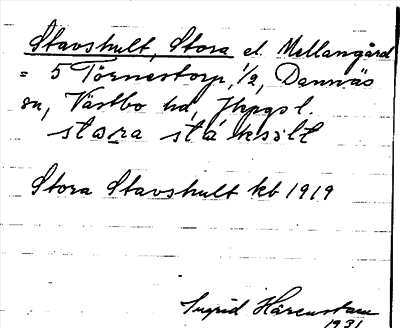 Stavshult, Stora el. Mellangård
= 5 Törnestorp, 1/2, Dannäs
sn, Västbo hd, Jkpgs l.
stora stáksült
Stora Stavshult kb 1919
Ingrid Härenstam
1931